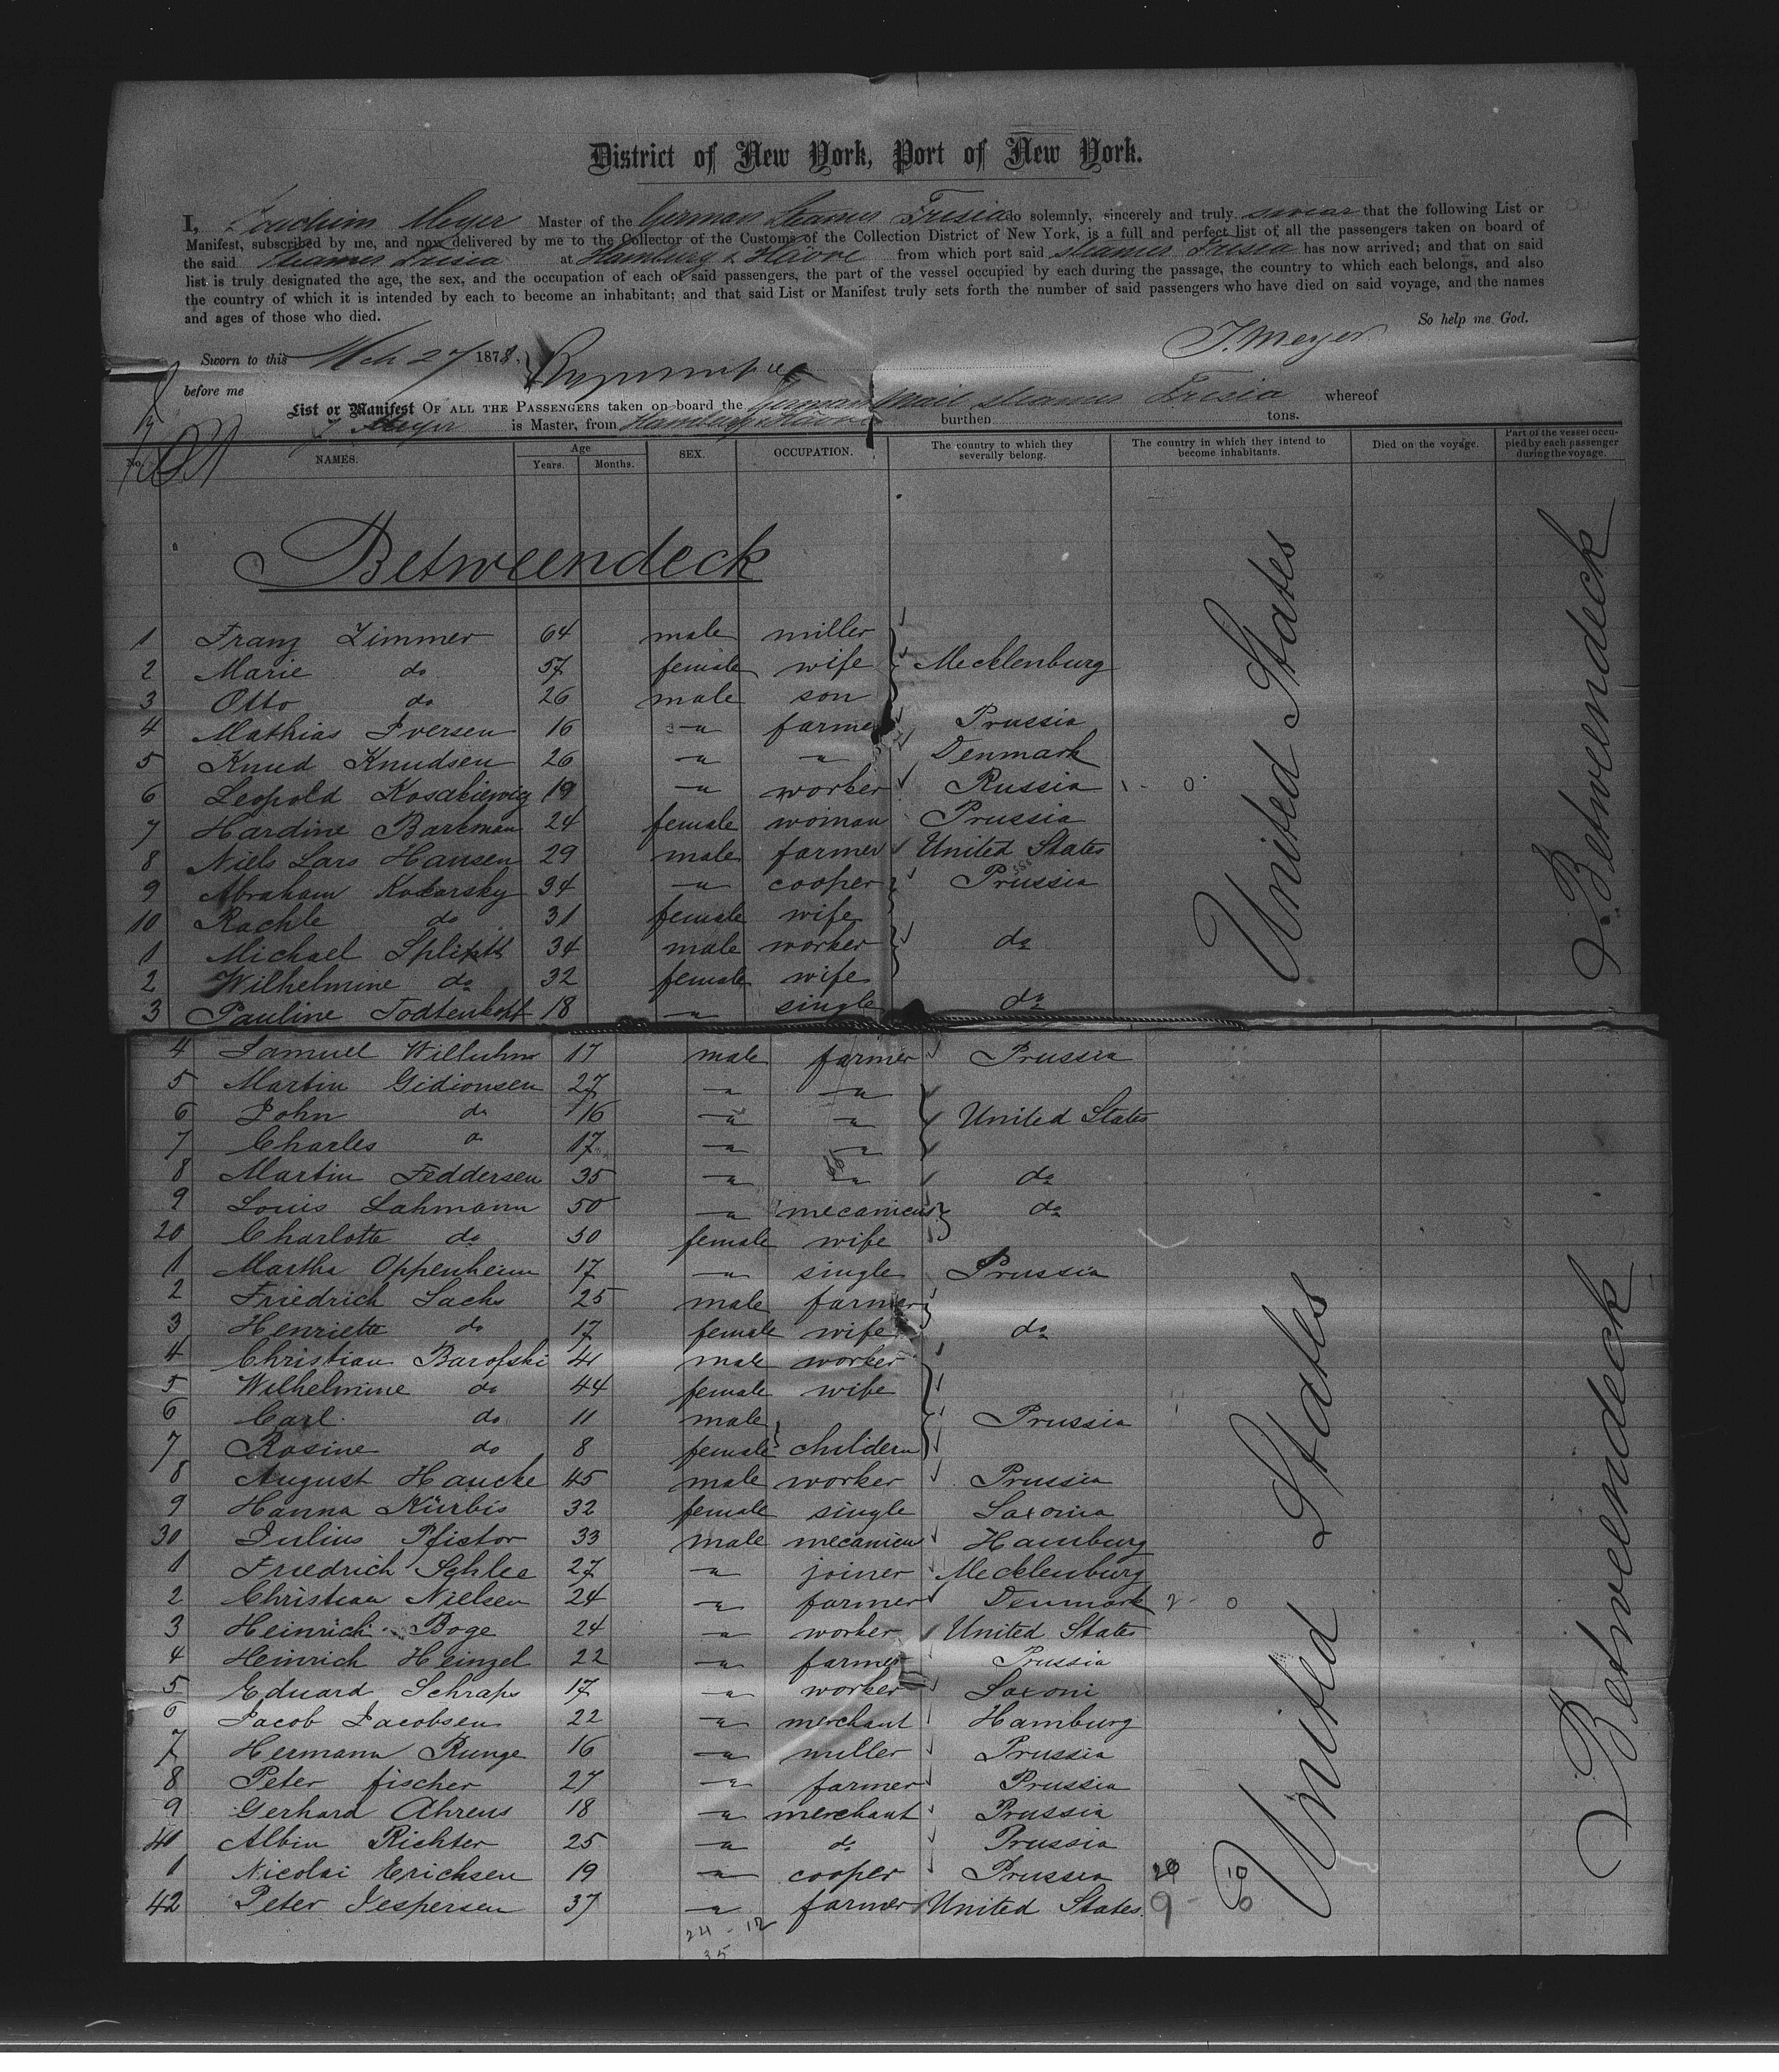 District of New York, Port of New York.
I, Joachim Meyer Master of the German Steamer Frisia do solemnly, sincerely and truly swear that the following List or
Manifest, subscribed by me, and now delivered by me to the Collector of the Customs of the Collection District of New York, is a full and perfect list of all the passengers taken on board of
the said Steamer Frisia at Hamburg & Havre from which port said steamer Frisia has now arrived; and that on said
list is truly designated the age, the sex, and the occupation of each of said passengers, the part of the vessel occupied by each during the passage, the country to which each belongs, and also
the country of which it is intended by each to become an inhabitant; and that said List or Manifest truly sets forth the number of said passengers who have died on said voyage, and the names
and ages of those who died. So help me God.
Sworn to this Mch 27 1878. J. Meyer
before me
List or Manifest OF ALL THE PASSENGERS taken on board the German Mail steamer Frisia whereof
J Meyer is Master, from Hamburg & Havre burthen tons.
No. NAMES. Age Years. Months. SEX. OCCUPATION. The country to which they severally belong. The country in which they intend to become inhabitants. Died on the voyage. Part of the vessel occupied by each passenger during the voyage.
Betweendeck
1 Franz Zimmer 64 male miller
2 Marie do 57 female wife Mecklenburg
3 Otto do 26 male son
4 Mathias Iversen 16 " farmer Prussia
5 Knud Knudsen 26 " " Denmark
6 Leopold Kosakiewig 19 " worker Russia 1 - 0
7 Hardine Barkman 24 female woman Prussia
8 Niels Lars Hansen 29 male farmer United States
9 Abraham Kozarsky 34 " cooper Prussia
10 Rachle do 31 female wife
1 Michael Splitth 34 male worker do
2 Wilhelmine do 32 female wife
3 Pauline Todtenkopf 18 " single do
United States
Betweendeck
4 Samuel Willuhn 17 male farmer Prussia
5 Martin Gidionsen 27 " "
6 John do 16 " " United States
7 Charles " 17 " "
8 Martin Feddersen 35 " " do
9 Louis Lahmann 50 " mecanicus do
20 Charlotte do 50 female wife
1 Martha Oppenheim 17 " single Prussia
2 Friedrich Sachs 25 male farmer
3 Henriette do 17 female wife do
4 Christian Barofski 41 male worker
5 Wilhelmine do 44 female wife
6 Carl do 11 male Prussia
7 Rosine do 8 female childern
8 August Haucke 45 male worker Prussia
9 Hanna Kürbis 32 female single Saxonia
30 Julius Pfistor 33 male mecanicus Hamburg
1 Friedrich Schlee 27 " joiner Mecklenburg
2 Christian Nielsen 24 " farmer Denmark 2 - 0
3 Heinrich Boge 24 " worker United States
4 Heinrich Heinzel 22 " farmer Prussia
5 Eduard Schraps 17 " worker Saxoni
6 Jacob Jacobsen 22 " merchant Hamburg
7 Hermann Runge 16 " miller Prussia
8 Peter fischer 27 " farmer Prussia
9 Gerhard Ahrens 18 " merchant Prussia
40 Albin Richter 25 " do Prussia
1 Nicolai Erichsen 19 " cooper Prussia 29 10
42 Peter Jespersen 37 " farmer United States. 9 - 0
24 - 12
35
United States
Betweendeck